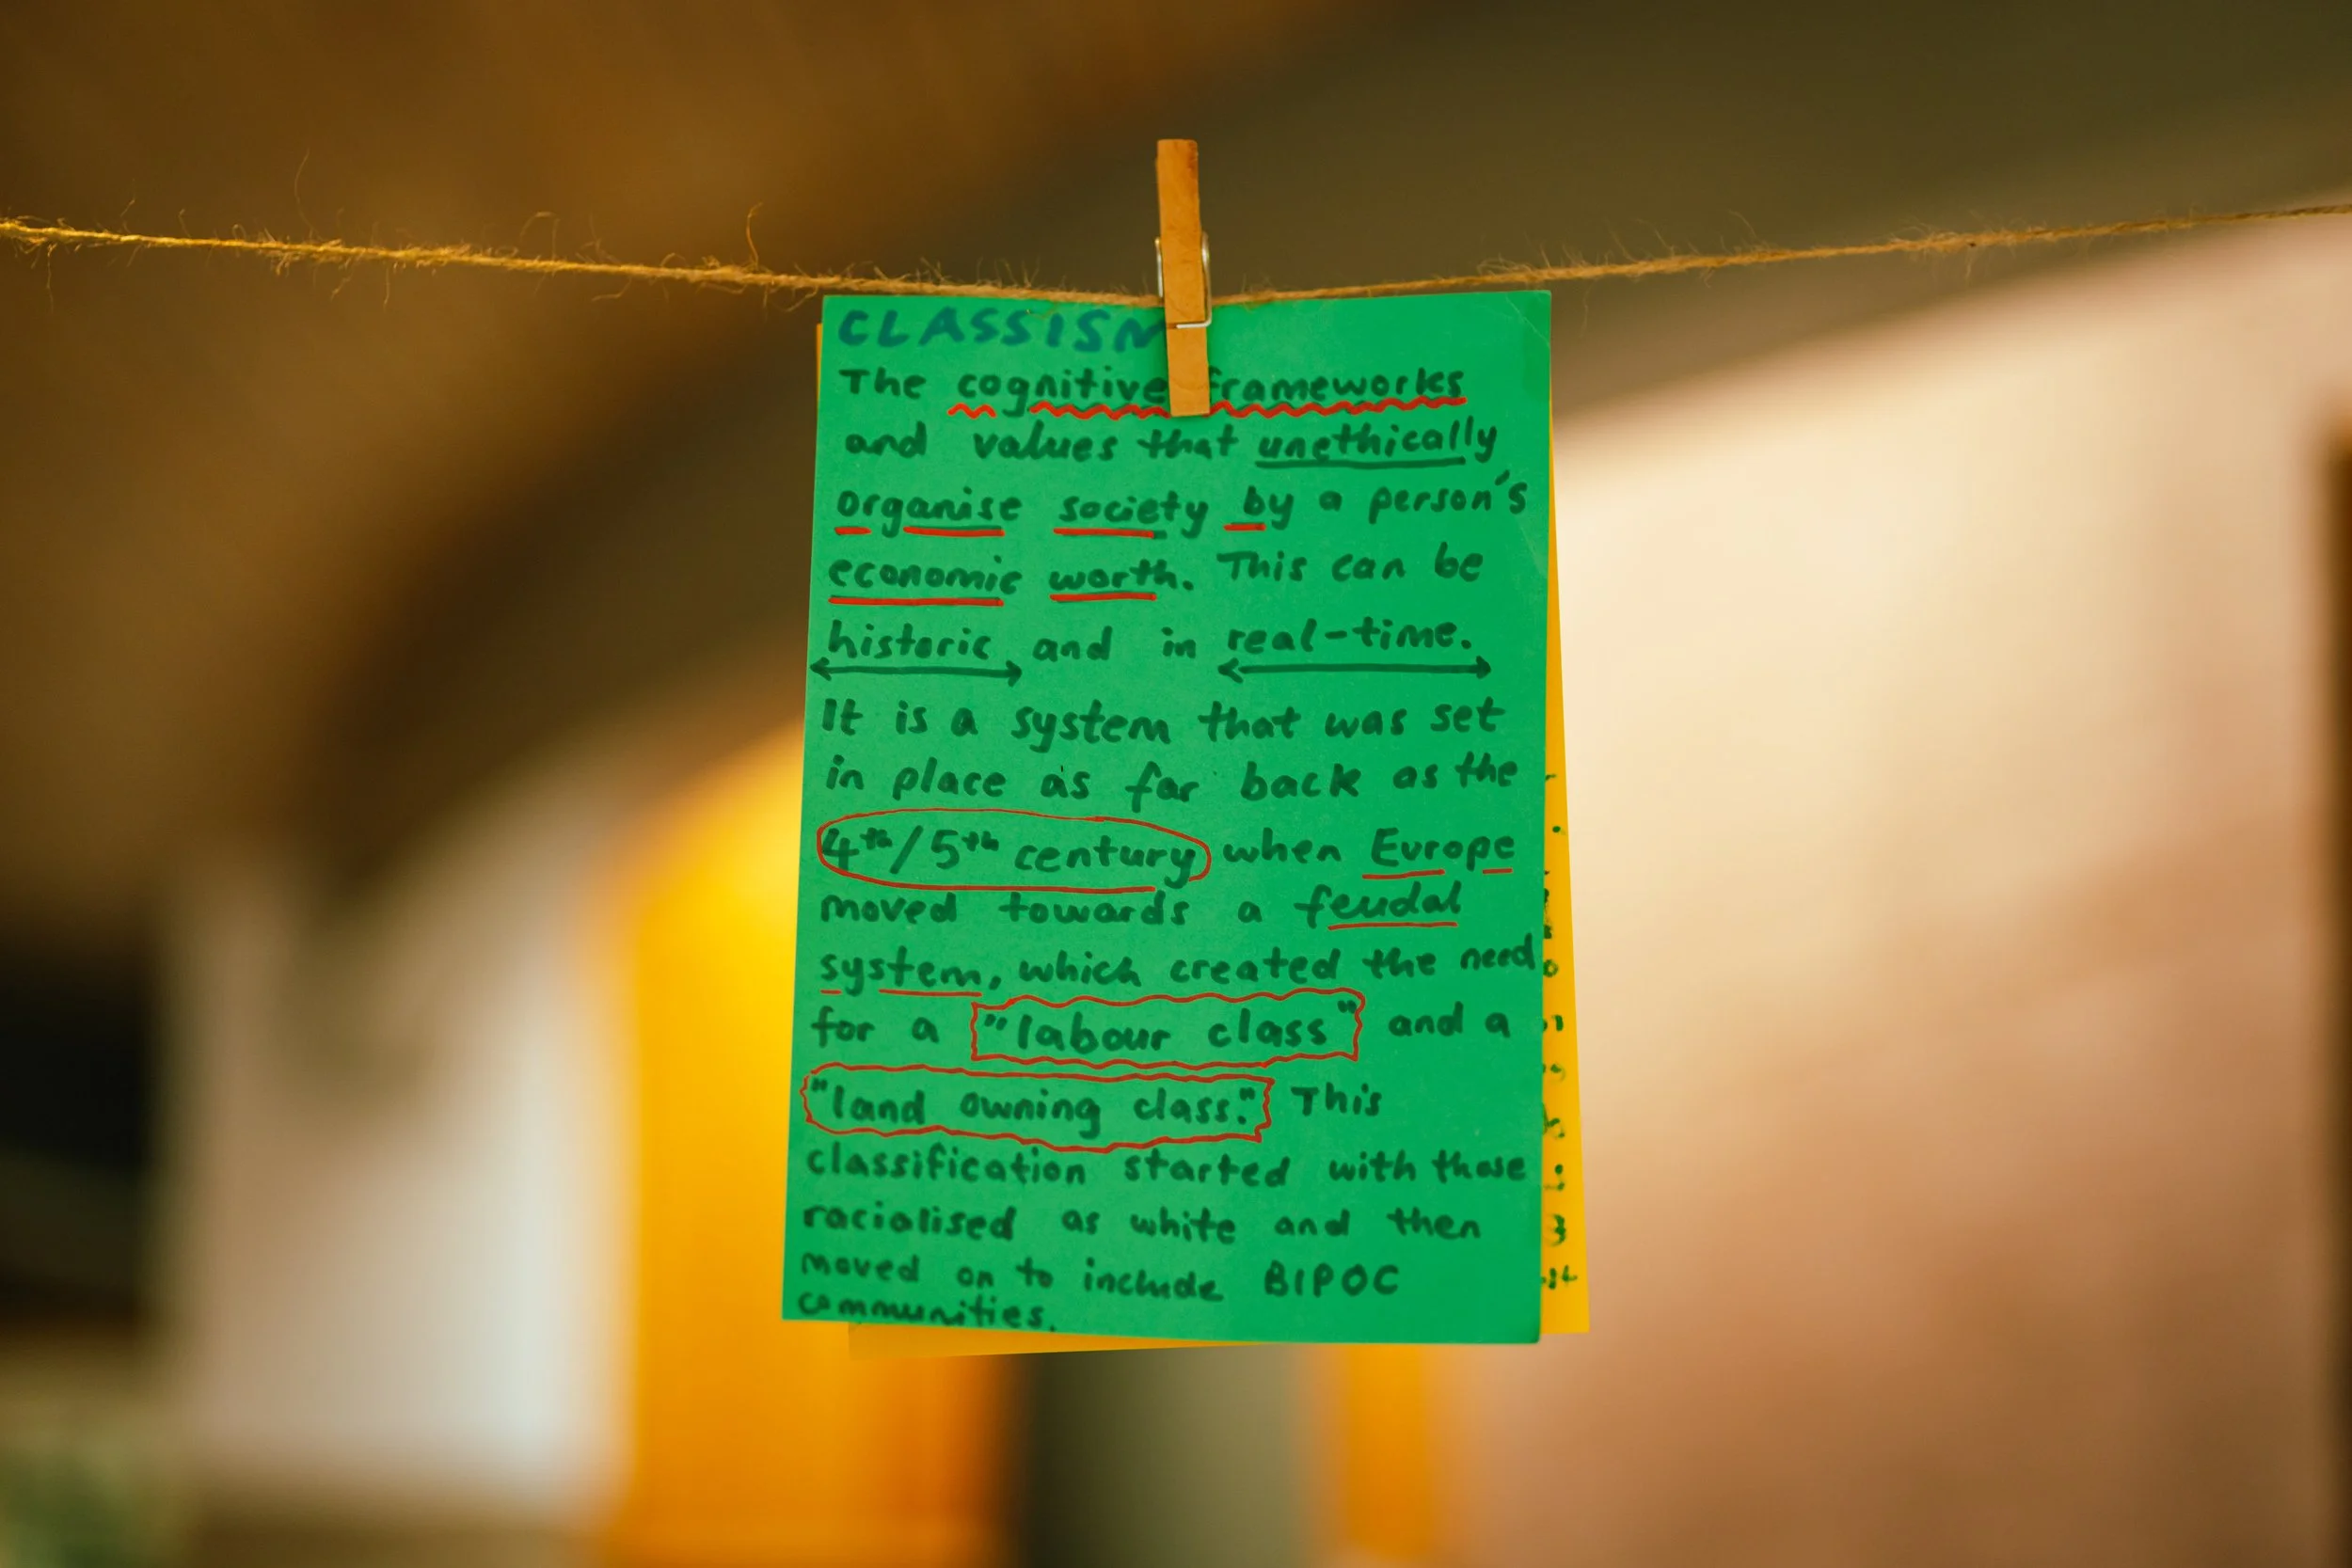 CLASSISM
The cognitive frameworks
and values that unethically
organise society by a person's
economic worth. This can be
historic and in real-time.
It is a system that was set
in place as far back as the
4th/5th century when Europe
moved towards a feudal
system, which created the need
for a "labour class" and a
"land owning class." This
classification started with those
racialised as white and then
moved on to include BIPOC
communities.